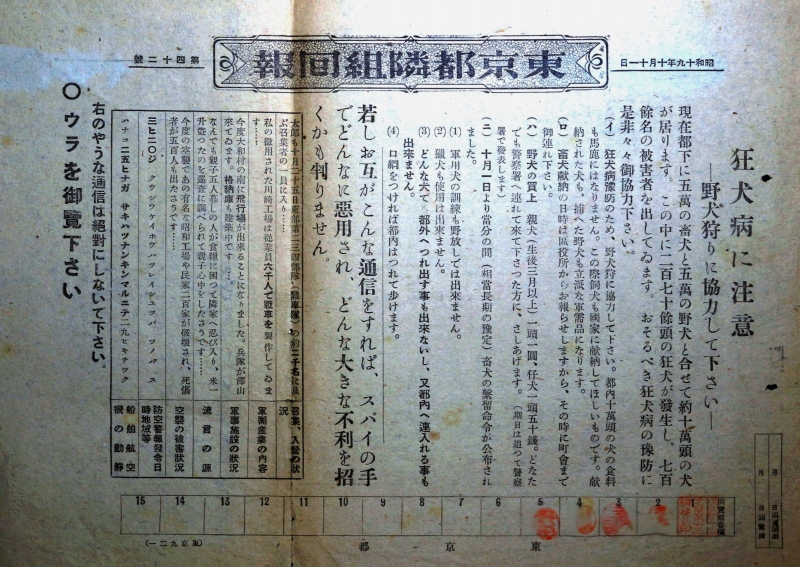 昭和十九年十月十一日
東京都隣組回報
第四十二號
狂犬病に注意
―野犬狩りに協力して下さい―
現在都下に五萬の畜犬と五萬の野犬と合せて約十萬頭の犬
が居ります。この中に二百七十餘頭の狂犬が發生し、七百
餘名の被害者を出してゐます。おそるべき狂犬病の豫防に
是非々々御協力下さい。
(イ) 狂犬病豫防のため、野犬狩に協力して下さい。都内十萬頭の犬の食料
も馬鹿にはなりません。この際飼犬も國家に献納してほしいものです。献
納された犬も、捕へた野犬も立派な軍需品になります。
(ロ) 畜犬献納の日時は區役所からお報らせしますから、その時に町會まで
御連れ下さい。
(ハ) 野犬の買上 親犬(生後三月以上)一頭一圓、仔犬一頭五十錢。どなた
でも警察署へ連れて來て下さつた方に、さしあげます。(期日は追つて警察
署で發表します)
(ニ) 十月一日より當分の間(相當長期の豫定)畜犬の繫留命令が公布され
ました。
(1) 軍用犬の訓練も野放しでは出來ません。
(2) 獵犬も使用は出來ません。
(3) どんな犬でも都外へつれ出す事も出來ないし、又都内へ連入れる事も
出來ません。
(4) 口網をつければ都内はつれて歩けます。
若しお互がこんな通信をすれば、スパイの手
でどんなに惡用され、どんな大きな不利を招
くかも判りません。
太郎も十月二十五日東部第二三四部隊(戰車隊)の約二千名に及
ぶ召集者の一員に入り……
召集、入營の狀況
私の徵用された川崎工場は從業員六千人で戰車を製作してゐま
す……
軍需産業の内容
今度大和村の南に飛行場が出來ることになりました。兵隊が澤山
來てゐます。格納庫も建築中です……
軍事施設の狀況
なんでも親子五人暮しの人が食糧に困つて隣家へ忍び入り、米一
升盜つたのを嚴重に調べられて親子心中をしたさうです……
流言の源
今度の空襲であの有名な昭和工場や民家二百家が破壞され、死傷
者が五百人も出たさうです……
空襲の被害狀況
三ヒ二〇ジ
防空警報發令日時地域等
二五ヒナガサキハツナンキンマルニテ二九ヒキタツク
船舶航空機の動靜
右のやうな通信は絕對にしないで下さい。
○ウラを御覽下さい
月 日
月 日
1 2 3 4 5 6 7 8 9 10 11 12 13 14 15
東京都